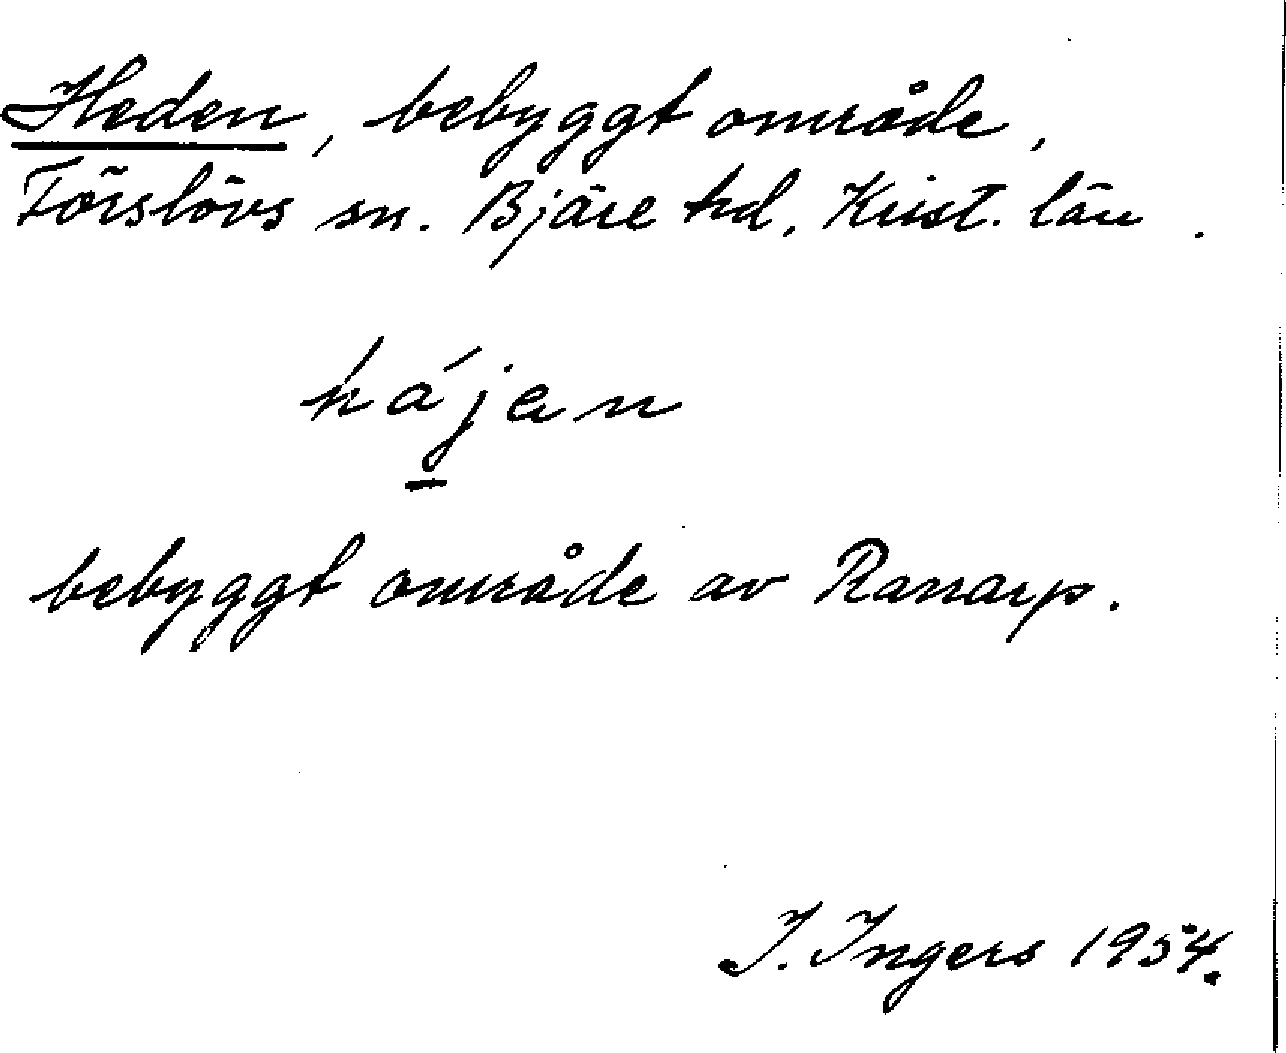 Heden, bebyggt område,
Förslövs sn. Bjäre hd. Krist. län.
hájan
bebyggt område av Ranarp.
I. Ingers 1954.